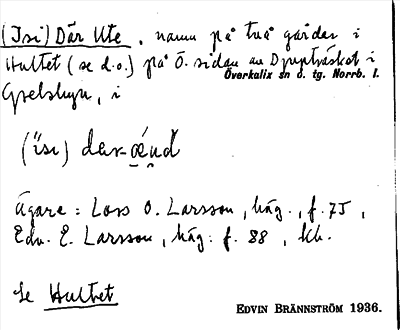 (Isi) Där Ute, namn på två gårdar i
Hultet (se d.o.) på Ö. sidan av Djupträsket i
Överkalix sn o. tg. Norrb. l.
i
(isi) där-
Ägare: Lars O. Larsson, häg., f. 75,
Edv. E. Larsson, häg. f. 88, &ch.
Se Hultet
EDVIN BRÄNNSTRÖM 1936.